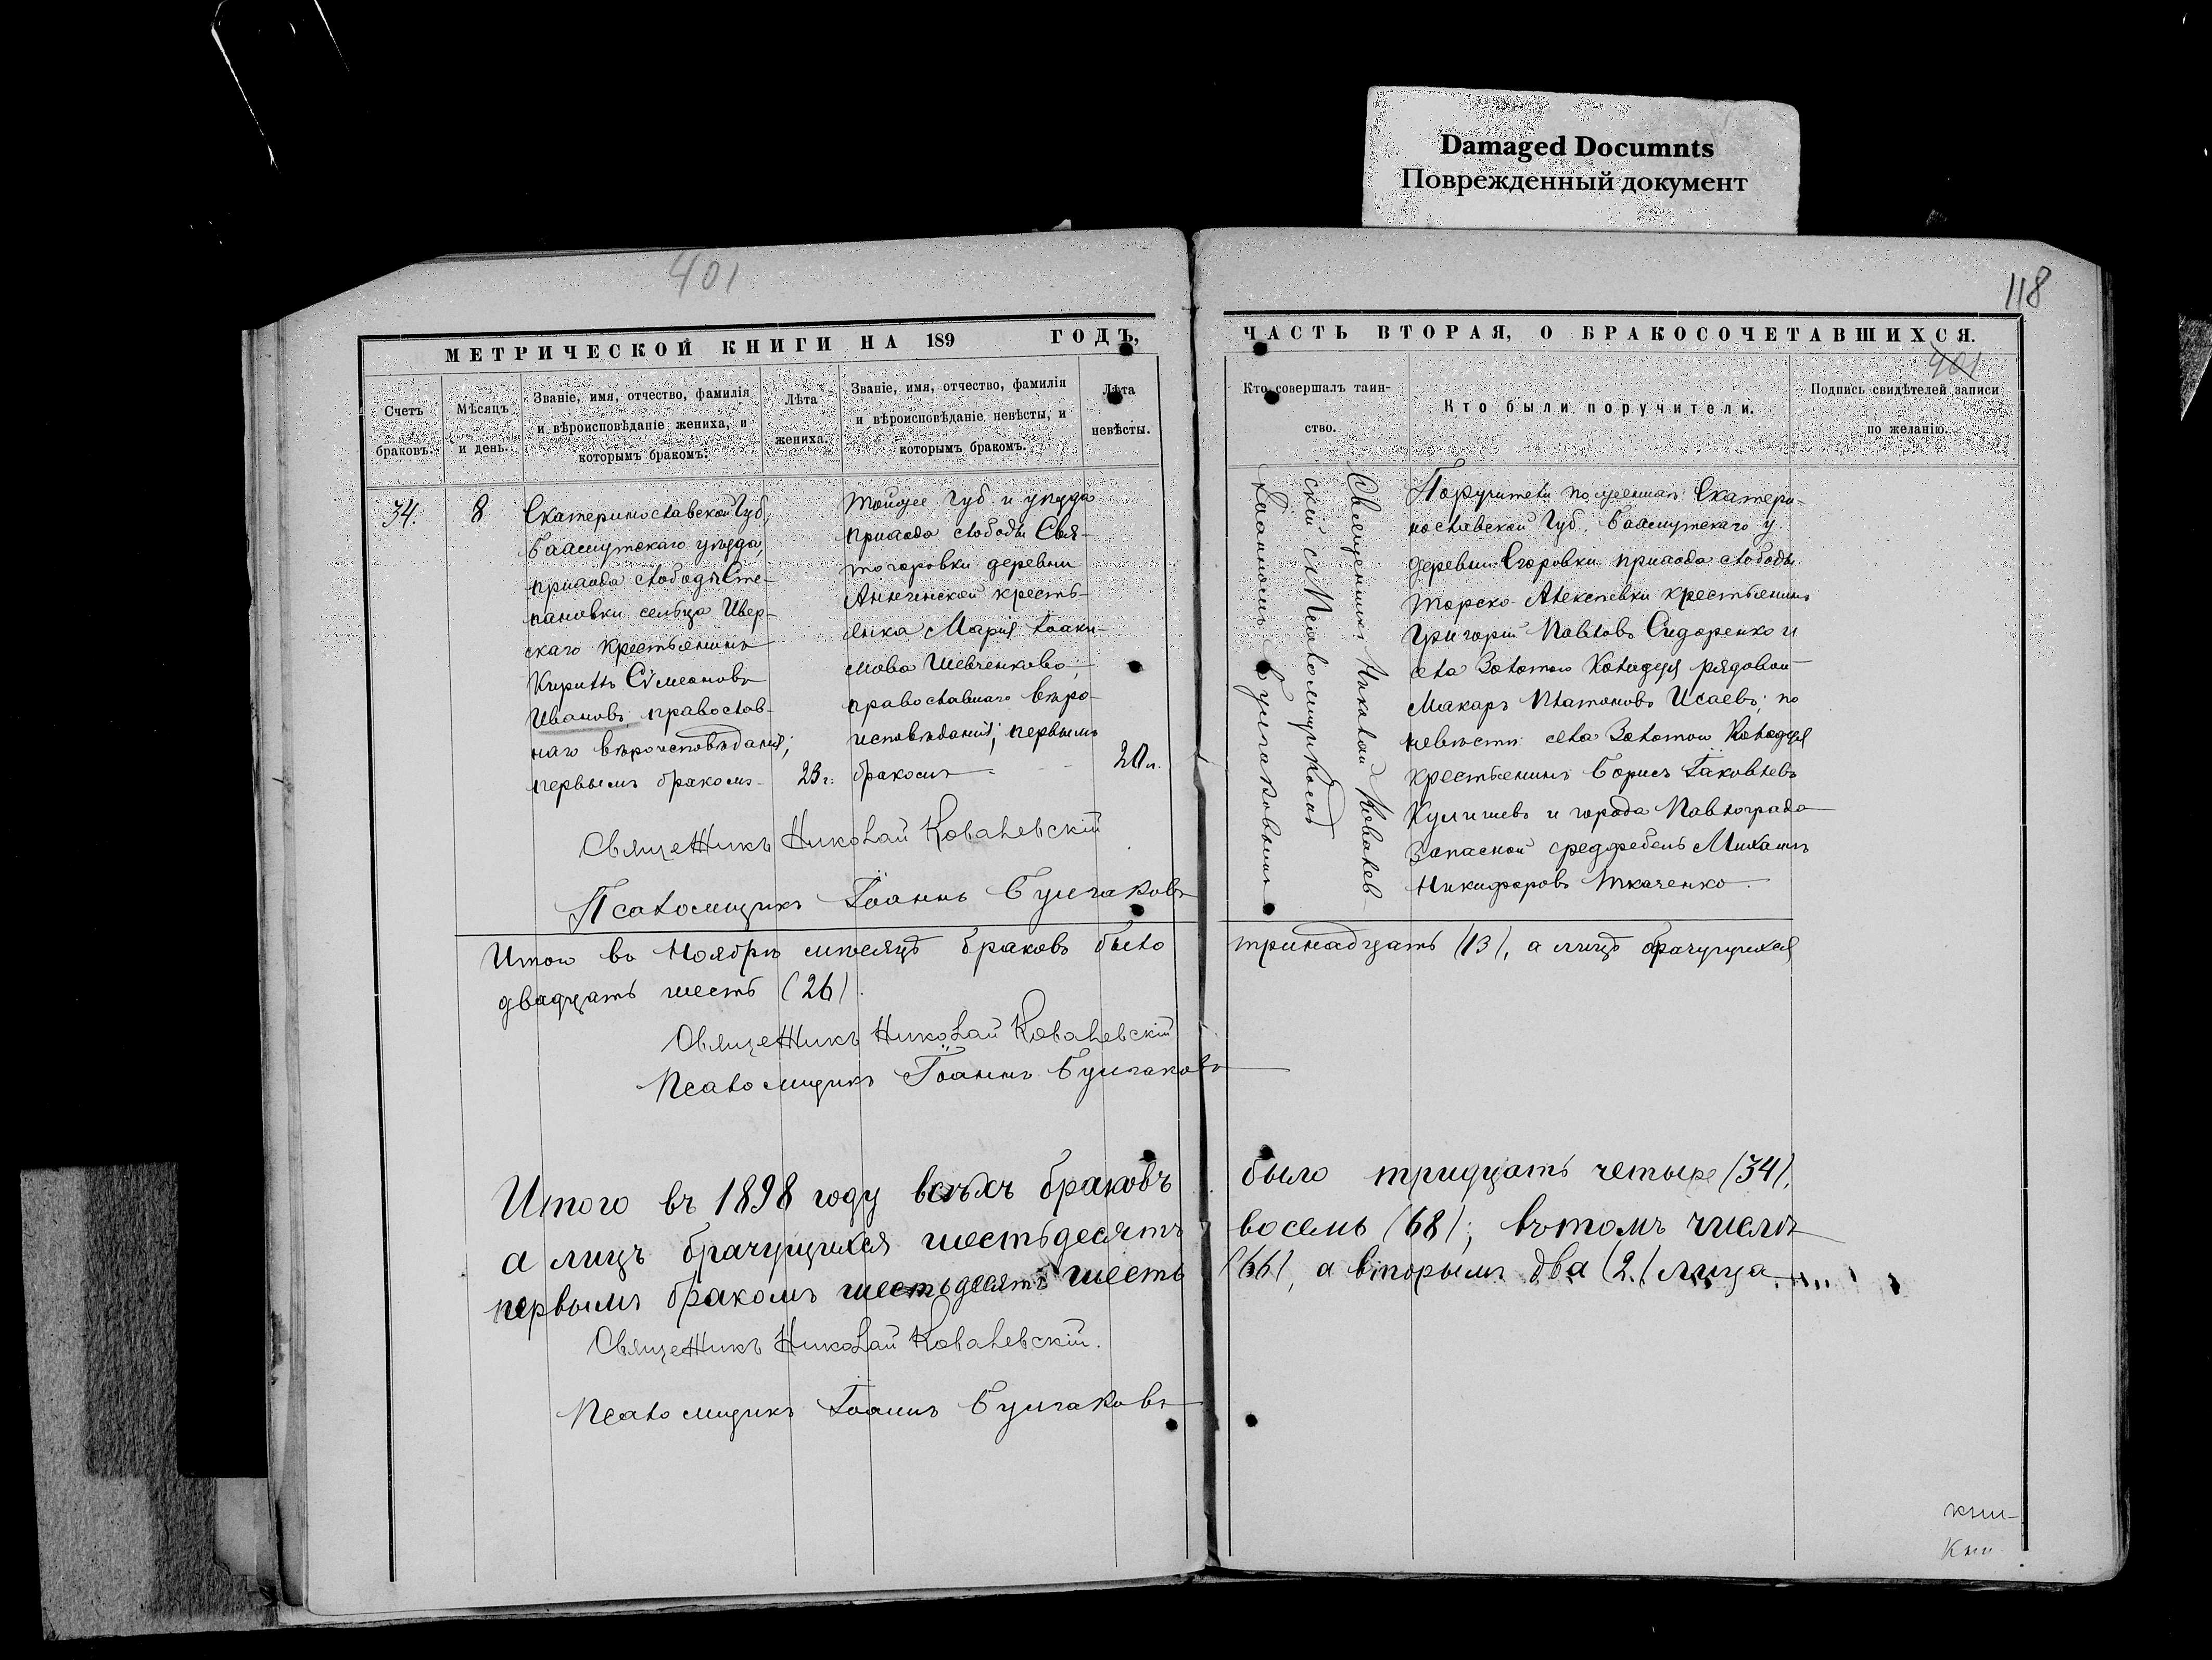 Damaged Documnts
Поврежденный документ
401
118
МЕТРИЧЕСКОЙ КНИГИ НА 189 ГОДЪ,
ЧАСТЬ ВТОРАЯ, О БРАКОСОЧЕТАВШИХСЯ.
401
Счетъ
браковъ.
Мѣсяцъ
и день.
Званіе, имя, отчество, фамилія
и вѣроисповѣданіе жениха, и
которымъ бракомъ.
Лѣта
жениха.
Званіе, имя, отчество, фамилія
и вѣроисповѣданіе невѣсты, и
которымъ бракомъ.
Лѣта
невѣсты.
Кто совершалъ таин-
ство.
Кто были поручители.
Подпись свидѣтелей записи
по желанію.
34.
8
Екатеринославской Губ,
Бахмутскаго уѣзда,
прихода слободы Сте-
пановки сельца Ивер-
скаго крестьянинъ
Кириллъ Сѵмеоновъ
Ивановъ, православ-
наго вѣроисповѣданія;
первымъ бракомъ
23 г.
тойже Губ. и уѣзда
прихода слободы Свя-
тогоровки деревни
Аннинской кресть-
янка Марія Іоаки-
мова Шевченкова;
православнаго вѣро-
исповѣданія; первымъ
бракомъ
20 л.
Священникъ Николай Ковалев-
скій съ Псаломщикомъ
Іоанномъ Булгаковымъ
Поручители по женихѣ: Екатери-
нославской Губ. Бахмутскаго у.
деревни Егоровки прихода слободы
Торско-Алексѣевки крестьянинъ
Григорій Павловъ Сидоренко и
села Золотого Колодезя рядовой
Макаръ Платоновъ Исаевъ; по
невѣстѣ: села Золотого Колодезя
крестьянинъ Борисъ Іаковлевъ
и города Павлограда
Запасной Михаилъ
Никифоровъ Ткаченко.
Священникъ Николай Ковалевскій
Псаломщикъ Іоаннъ Булгаковъ
Итого въ Ноябрѣ мѣсяцѣ браковъ было тринадцать (13), а лицъ брачущихся
двадцать шесть (26).
Священникъ Николай Ковалевскій
Псаломщикъ Іоаннъ Булгаковъ
Итого въ 1898 году всѣхъ браковъ было тридцать четыре (34),
а лицъ брачущихся шестьдесятъ восемь (68); въ томъ числѣ
первымъ бракомъ шестьдесятъ шесть (66), а вторымъ два (2) лица
Священникъ Николай Ковалевскій.
Псаломщикъ Іоаннъ Булгаковъ
кни-
Кни